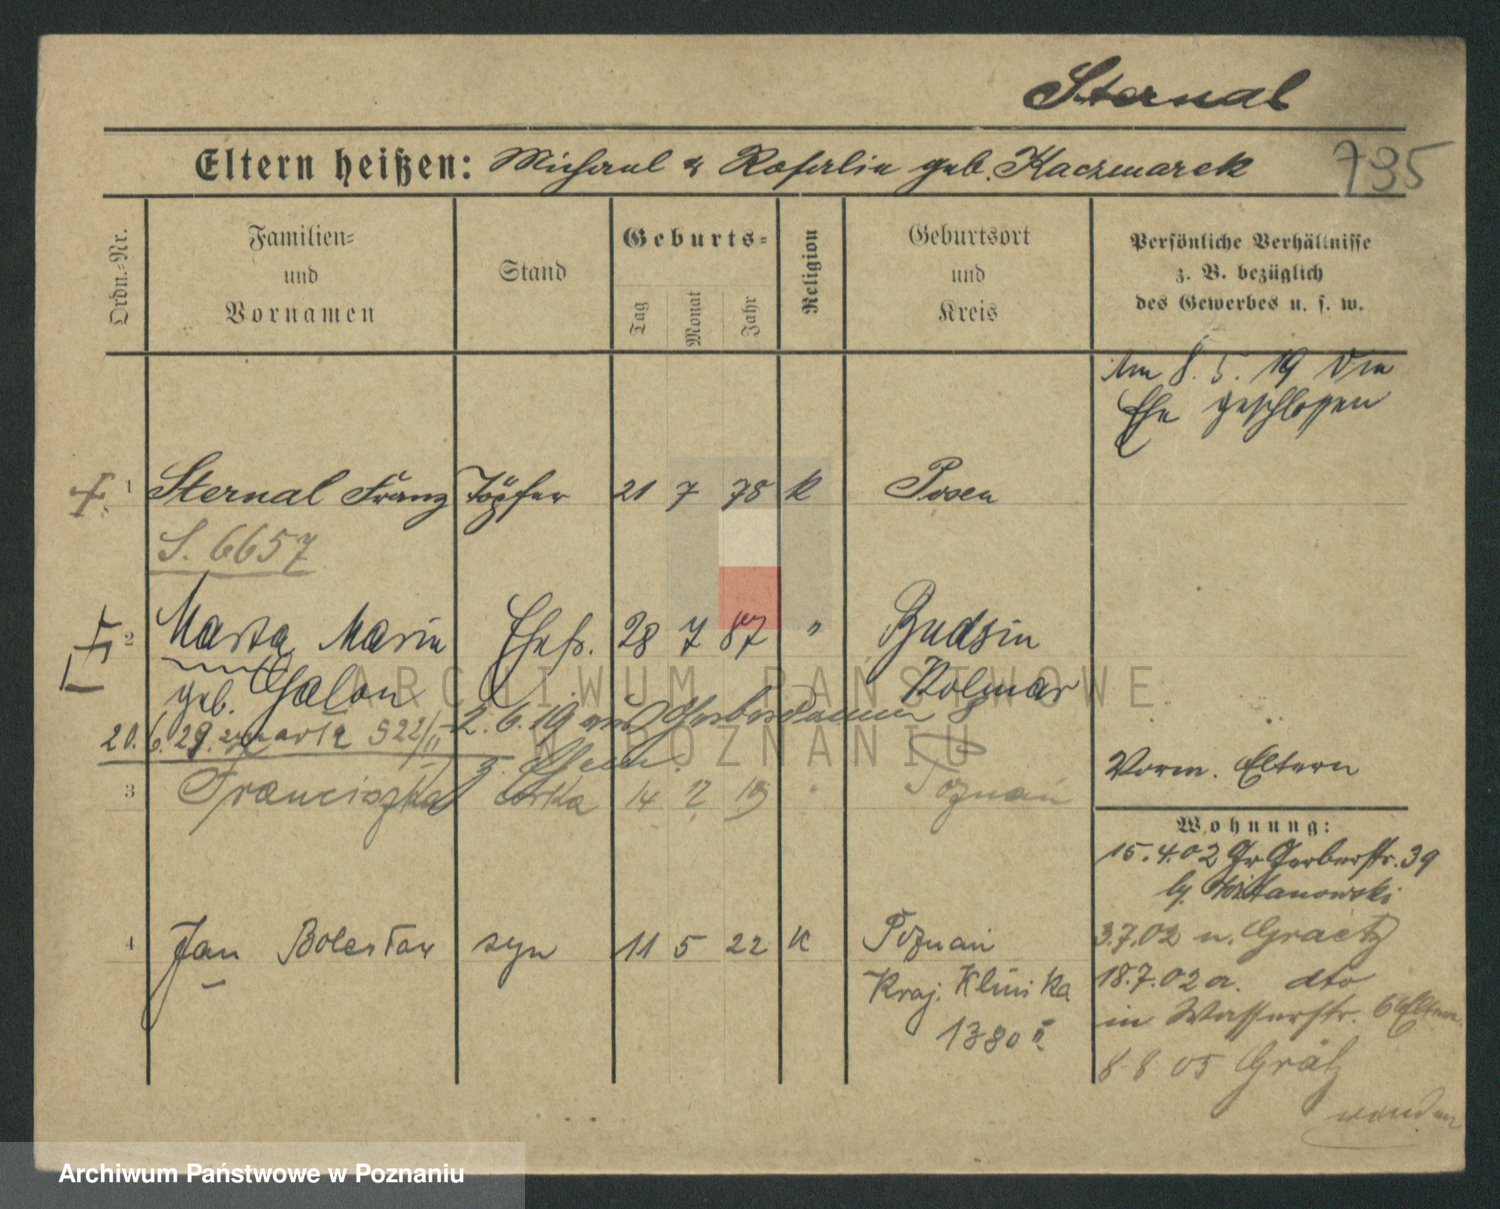 Sternal
Eltern heißen: Michael & Rosalie geb. Kaczmarek
795
Ordn.=Nr.
Familien= und Vornamen
Stand
Geburts=
Tag
Monat
Jahr
Religion
Geburtsort und Kreis
Persönliche Verhältnisse
z. B. bezüglich
des Gewerbes u. s. w.
Am 8. 5. 19 die
Ehe geschlossen
1 Sternal Franz Töpfer 21 7 78 k Posen
S. 6657
2 Marta Marie Ehefr. 28 7 87 " Budsin
geb. Galon Kolmar
20. 6. 29. zmarła 522/II
2. 6. 19 aus
z. Ehem.
3 Franciszka córka 14 2 19 " Poznań
Vorm. Eltern
Wohnung:
15. 4. 02 Gr Gerberstr. 39
3. 7. 02 n. Graetz
18. 7. 02 a. dto
in Wasserstr. 6 Eltern
8 8 05 Grätz
wenden
4 Jan Bolesław syn 11 5 22 k Poznań
Kraj. Klinika
1380 II
ARCHIWUM PAŃSTWOWE
W POZNANIU
Archiwum Państwowe w Poznaniu